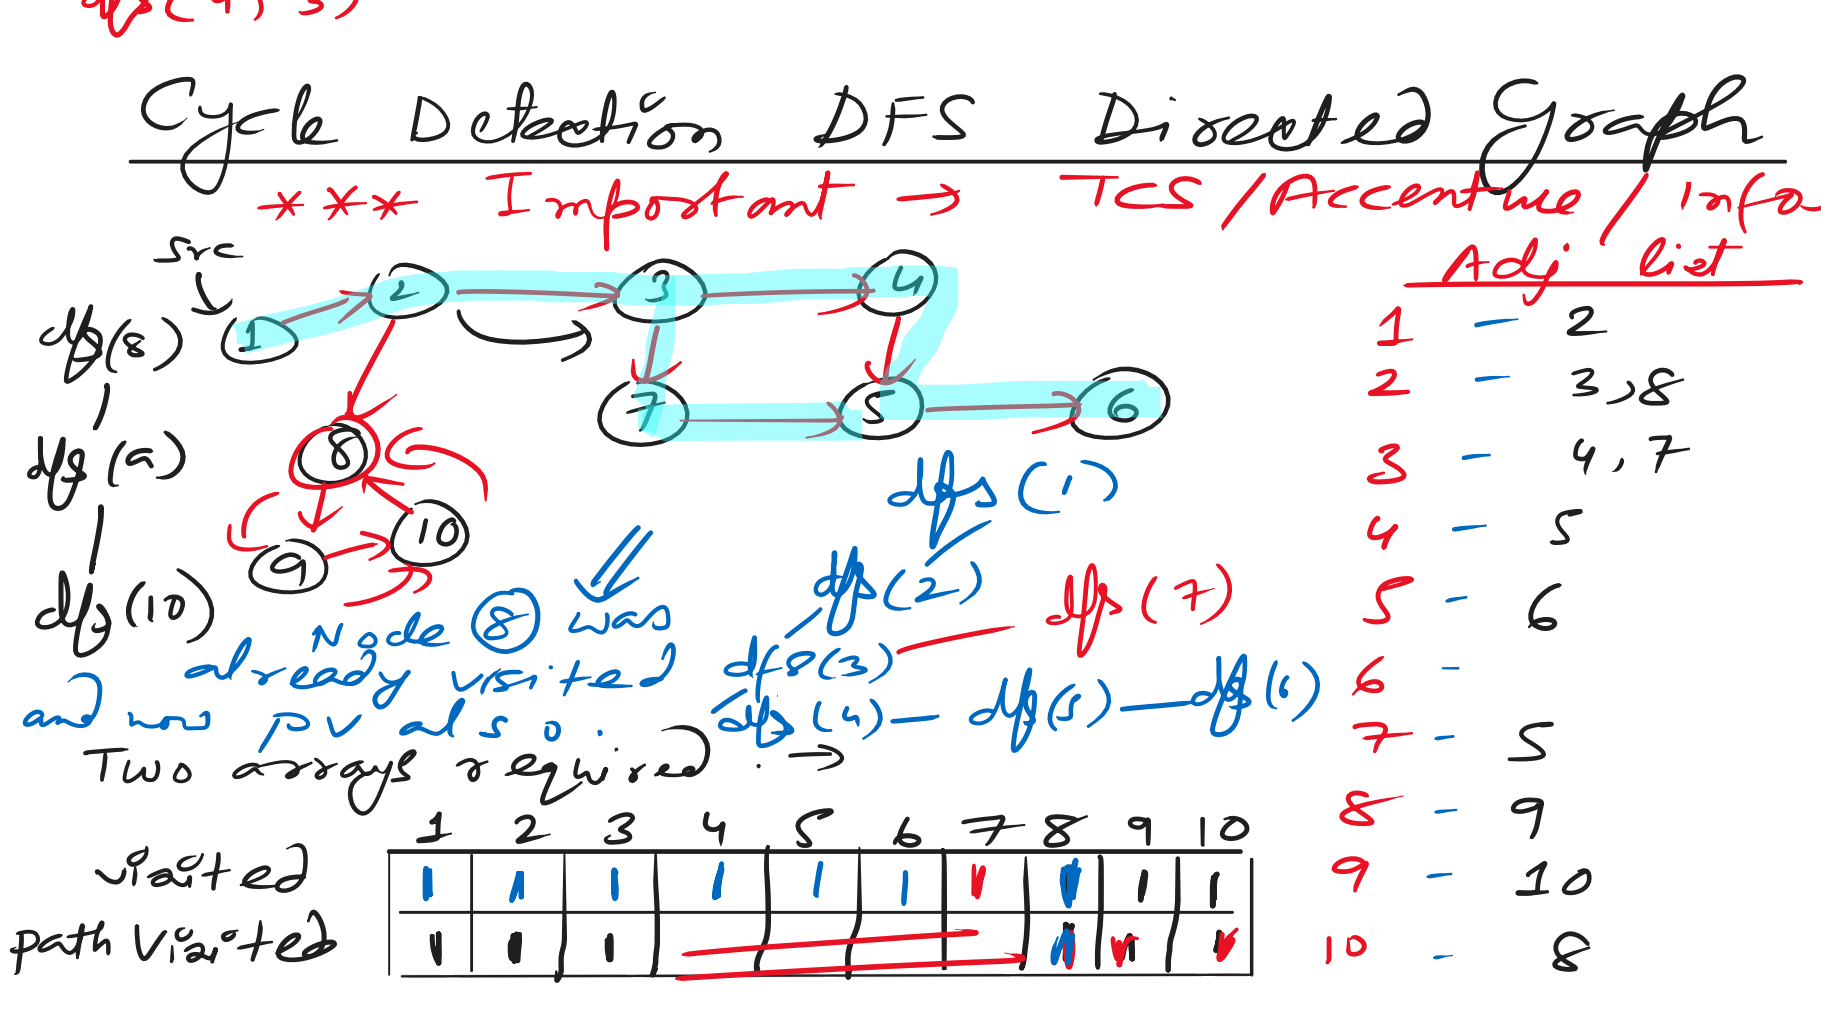 dfs(4, 3)
Cycle Detection DFS Directed Graph
*** Important → TCS/Accenture/Info
src
Adj list
1 2 3 4
7 5 6
8
9 10
dfs(8)
dfs(a)
dfs(10)
1 - 2
2 - 3,8
3 - 4,7
4 - 5
5 - 6
6 -
7 - 5
8 - 9
9 - 10
10 - 8
dfs(1)
dfs(2) dfs(7)
dfs(3)
dfs(4) — dfs(5) — dfs(6)
Node 8 was
already visited
and now pv also.
Two arrays required. →
1 2 3 4 5 6 7 8 9 10
visited 1 1 1 1 1 1 1 1 1
path Visited 1 1 1 1 1